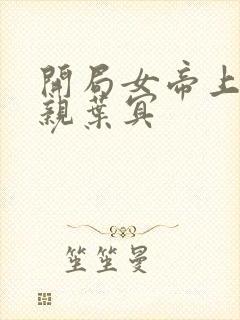 開局女帝上
親葉冥
笙笙曼